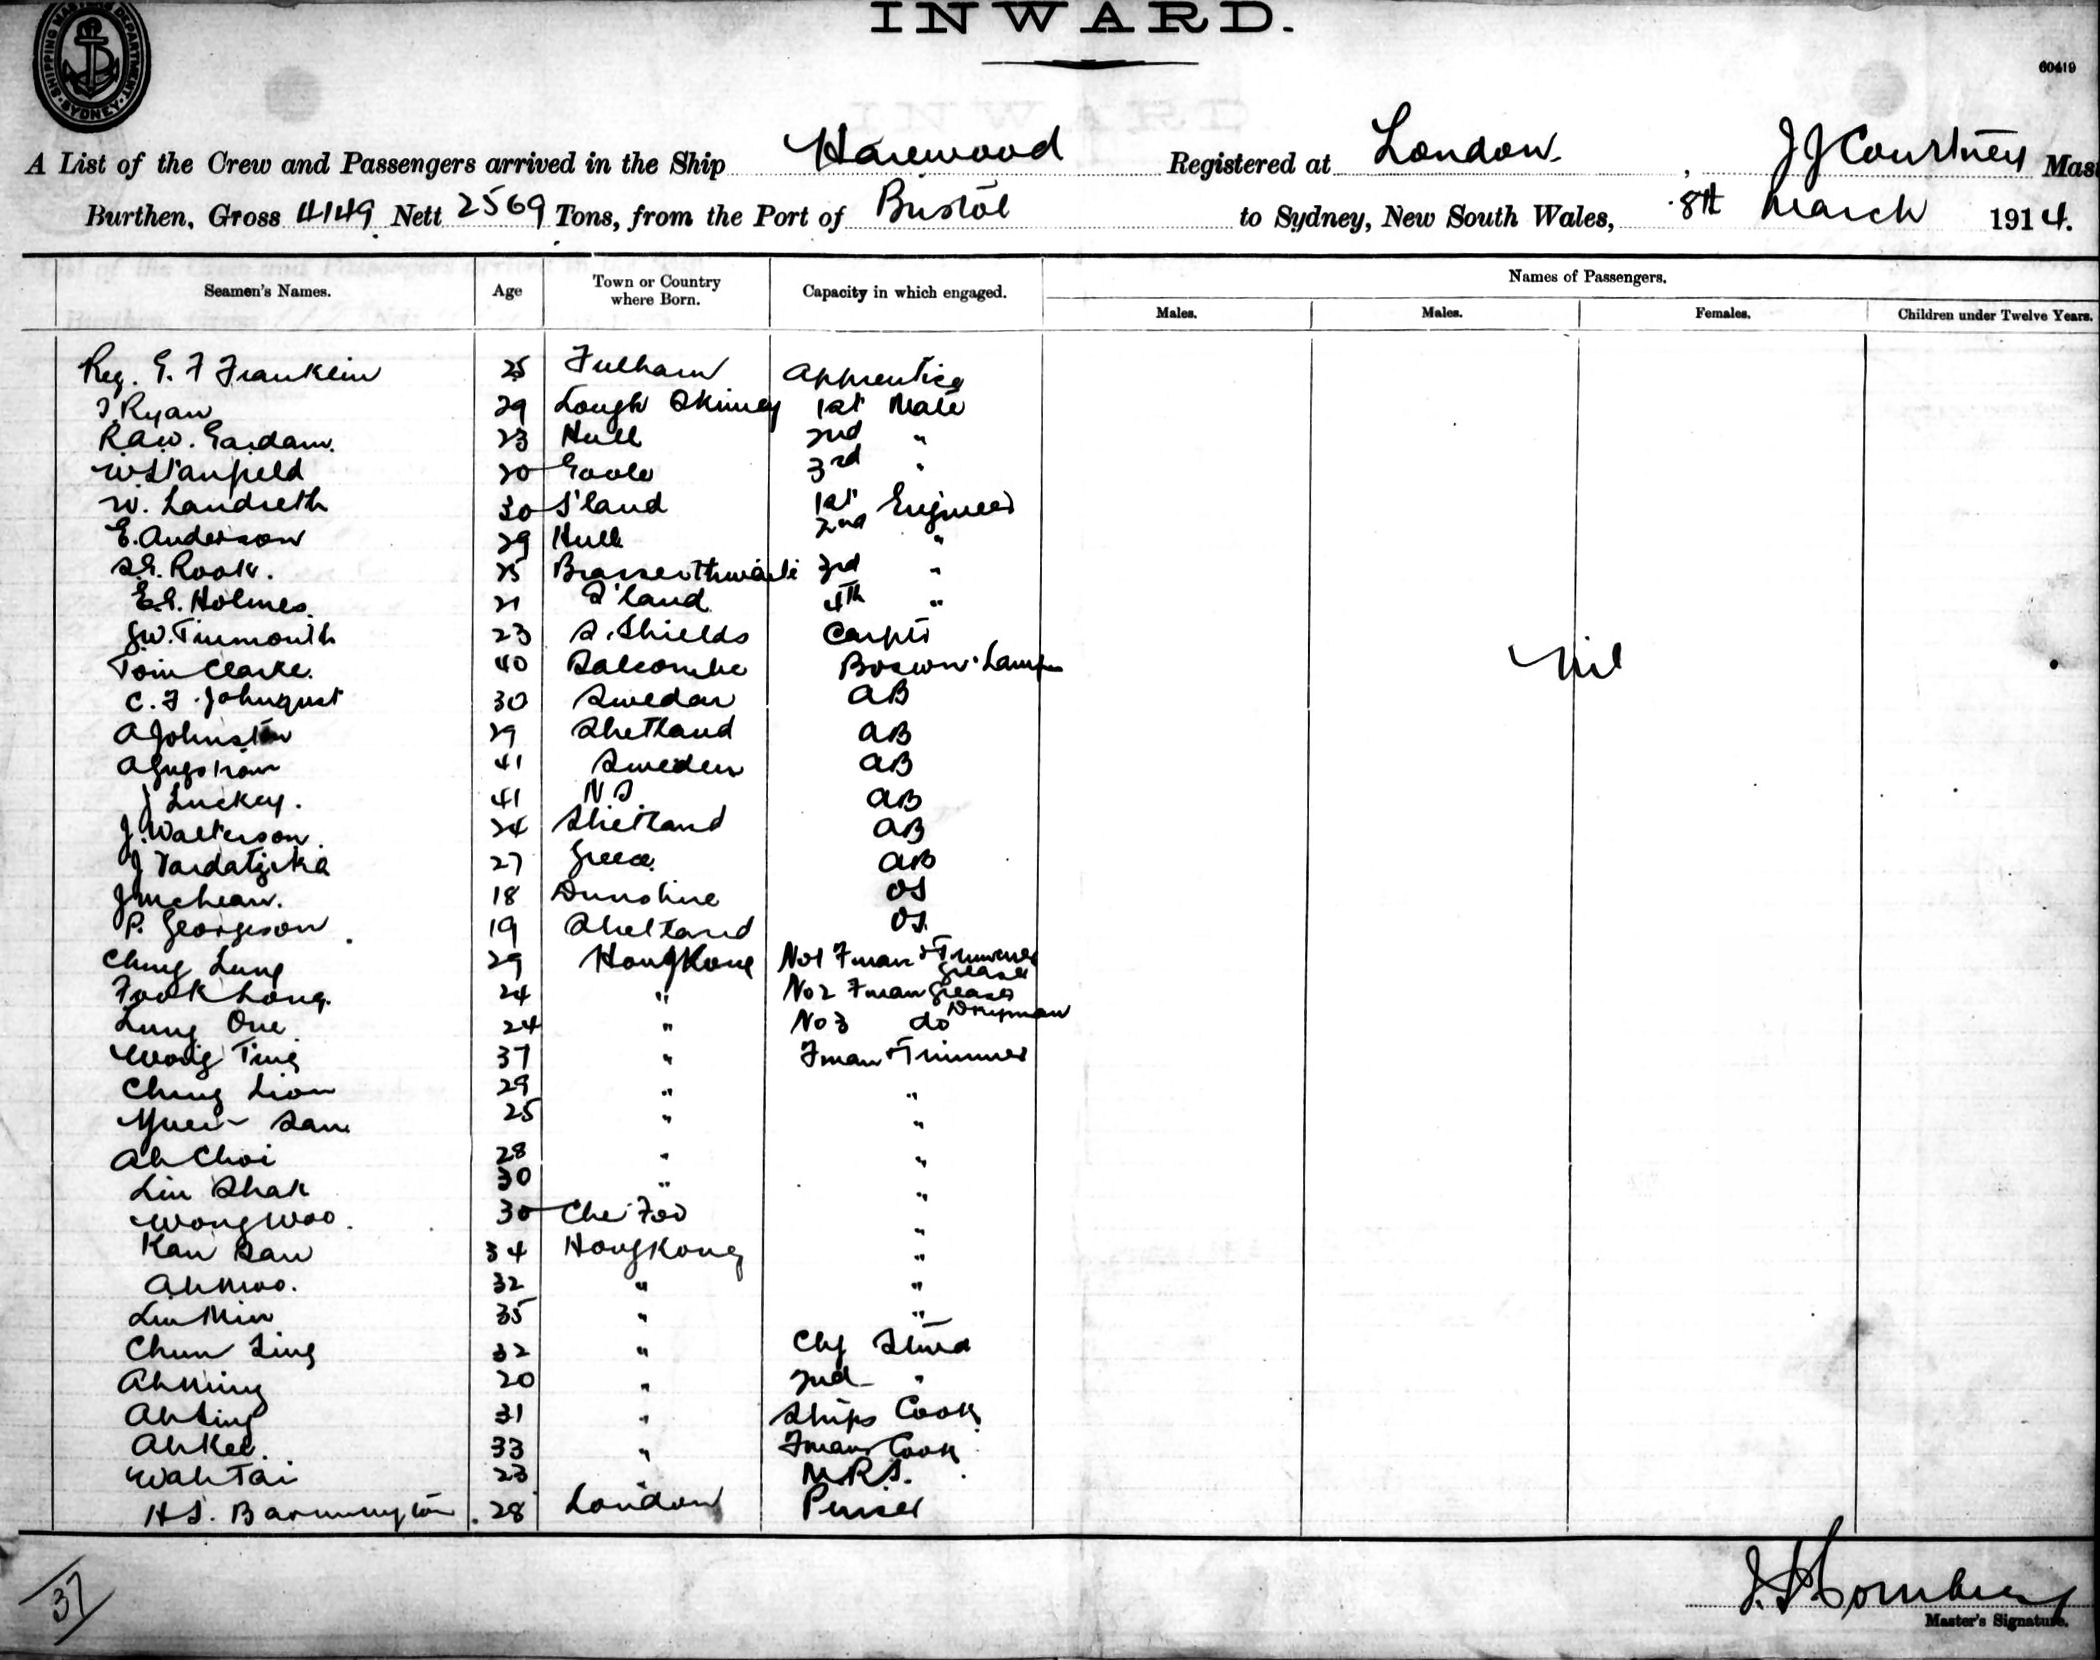 INWARD.
SHIPPING MASTERS DEPARTMENT. SYDNEY.
60419
A List of the Crew and Passengers arrived in the Ship Harewood Registered at London, J J Courtney Mas
Burthen, Gross 4149 Nett 2569 Tons, from the Port of Bristol to Sydney, New South Wales, 8th March 1914.
Seamen's Names. Age Town or Country where Born. Capacity in which engaged. Names of Passengers.
Males. Males. Females. Children under Twelve Years.
Reg. E. F Franklin 25 Fulham Apprentice
J Ryan 29 Lough 1st Mate
R.A.W. Gardam. 23 Hull 2nd "
W. Stanfield 20 Goole 3rd "
W. Landreth 30 S'land 1st Engineer
E. Anderson 29 Hull 2nd "
S.E. Rook. 25 3rd "
E.E. Holmes. 21 S'land 4th "
G.W. Tinmouth 23 S. Shields Carptr
Tom Clarke. 40 Salcombe Boswn. Lamps
C. F. Johnqust 30 Sweden AB
nil
A Johnston 29 Shetland AB
A 41 Sweden AB
J Luckey. 41 N S AB
J. Walterson. 24 Shetland AB
J 27 Greece AB
J McLean. 18 OS
P. Georgeson 19 Shetland OS.
Ching Lung 29 HongKong No1 Fman & Trimmer Greaser
Fook Long. 24 " No2 Fman Greaser
Lung One 24 " No3 do Dnkyman
Wong Ting 37 " Fman & Trimmer
Ching Lion 29 " "
Yuen San 25 " "
Ah Choi 28 " "
Lin Shak 30 " "
Wong Woo. 30 Che Foo "
Kan San 34 HongKong "
Ah Moo. 32 " "
Lin Min 35 " "
Chun Sing 32 " Chf Stwd
Ah Ming 20 " 2nd "
Ah Sing 31 " Ships Cook
Ah Kee. 33 " Fmans Cook
Wah Tai 23 " M.R.S.
H S. Barmington 28 London Purser
37
Master's Signature.